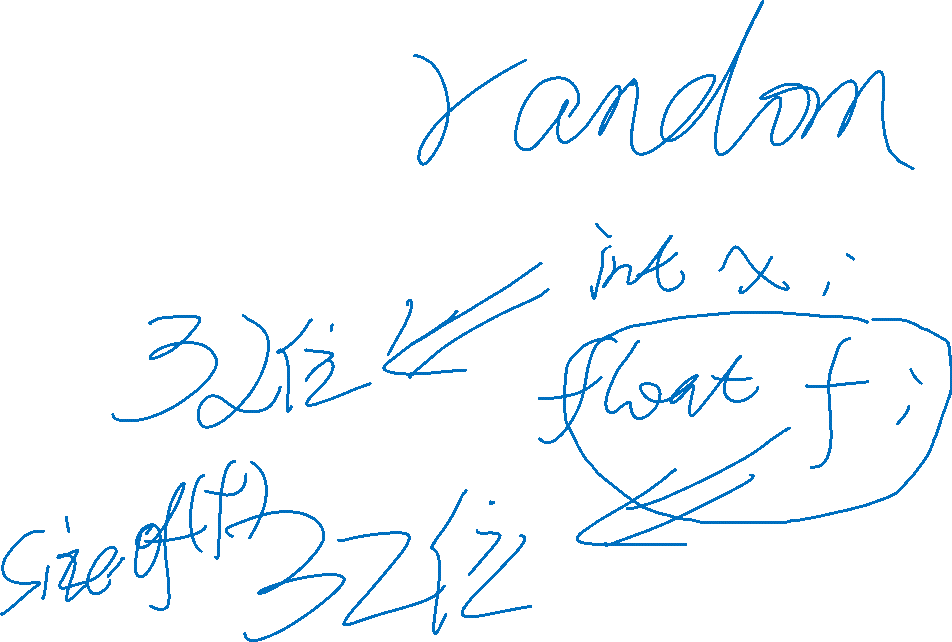 random
int x;
32位
float f;
sizeof(f)
32位